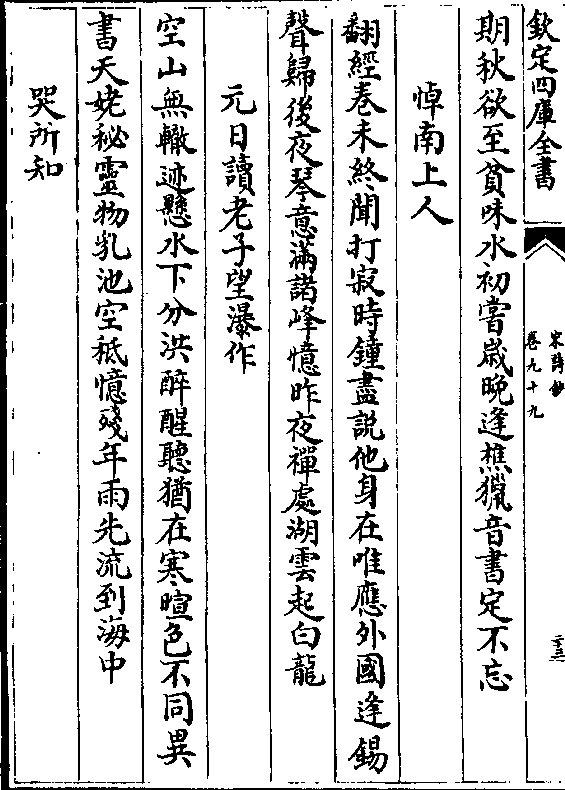 欽定四庫全書
宋詩鈔
卷九十九
二三
期秋欲至貧味水初嘗嵗晚逢樵獵音書定不忘
悼南上人
翻經巻未終聞打寂時鐘盡説他身在唯應外國逢錫
聲歸後夜琴意滿諸峰憶昨夜禪處湖雲起白龍
元日讀老子望瀑作
空山無轍迹懸水下分洪醉醒聽猶在寒暄色不同異
書天姥秘靈物乳池空秪憶殘年雨先流到海中
哭所知